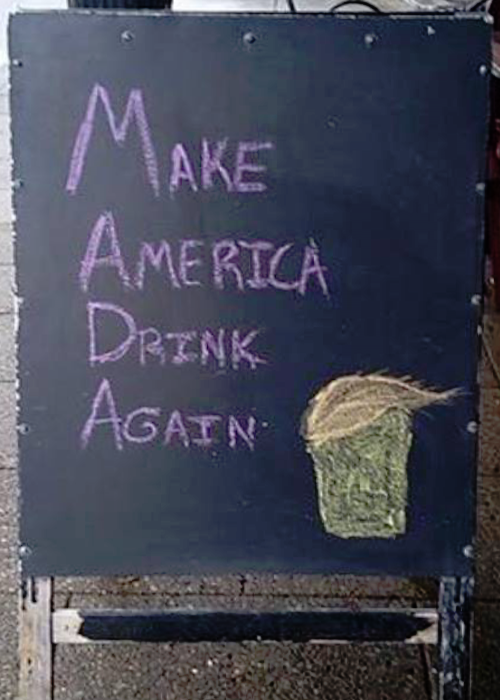 Make
America
Drink
Again